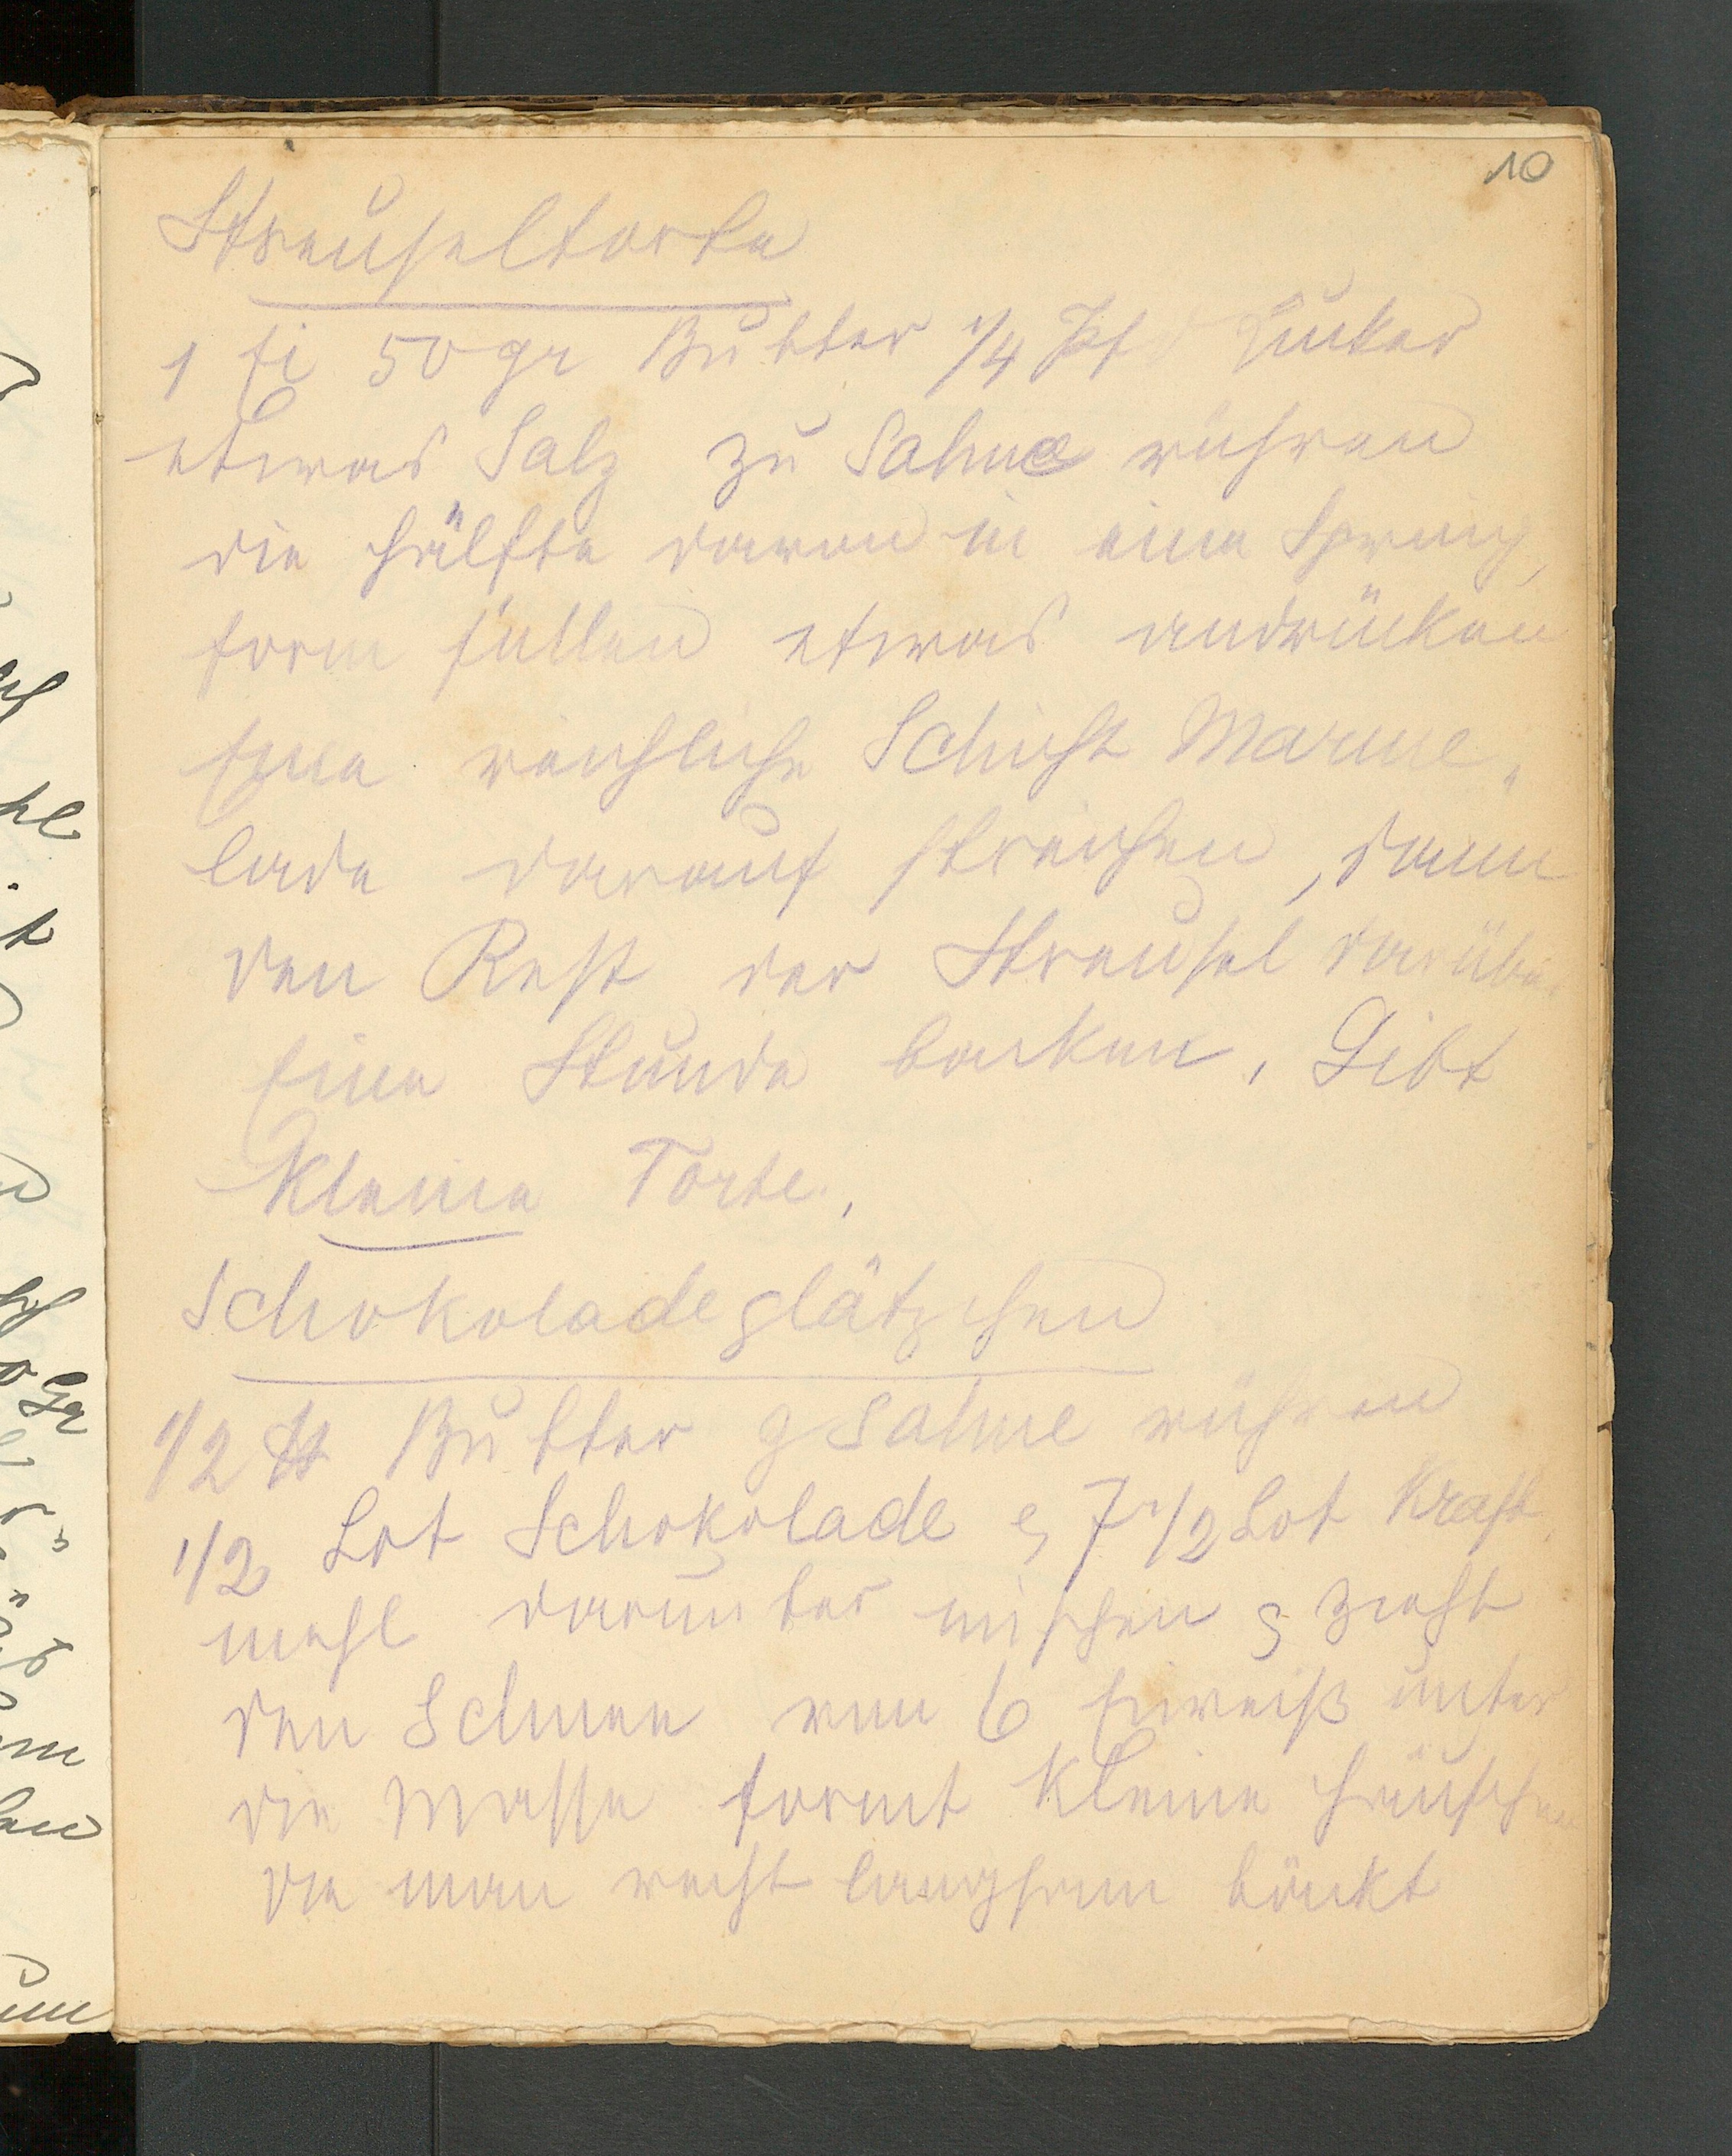 10
Streuseltorte
1 Ei 50 gr Butter 1/4 Pf Zucker
etwas Salz zu Sahne rühren
die Hälfte davon in eine Spring,
form füllen etwas andrücken
Eine reichliche Schicht Marme„
lade darauf streichen, dann
den Rest der Streusel darüber
Eine Stunde backen, Gibt
Kleine Torte.
Schokoladeplätzchen
1/2 ℔ Butter z Sahne rühren
1/2 Lot Schokolade & 7 1/2 Lot Kraft,
mehl darunter mischen & zieht
den Schnee von 6 Eiweiß unter
die Masse formt Kleine Häufchen
die man recht langsam bäckt